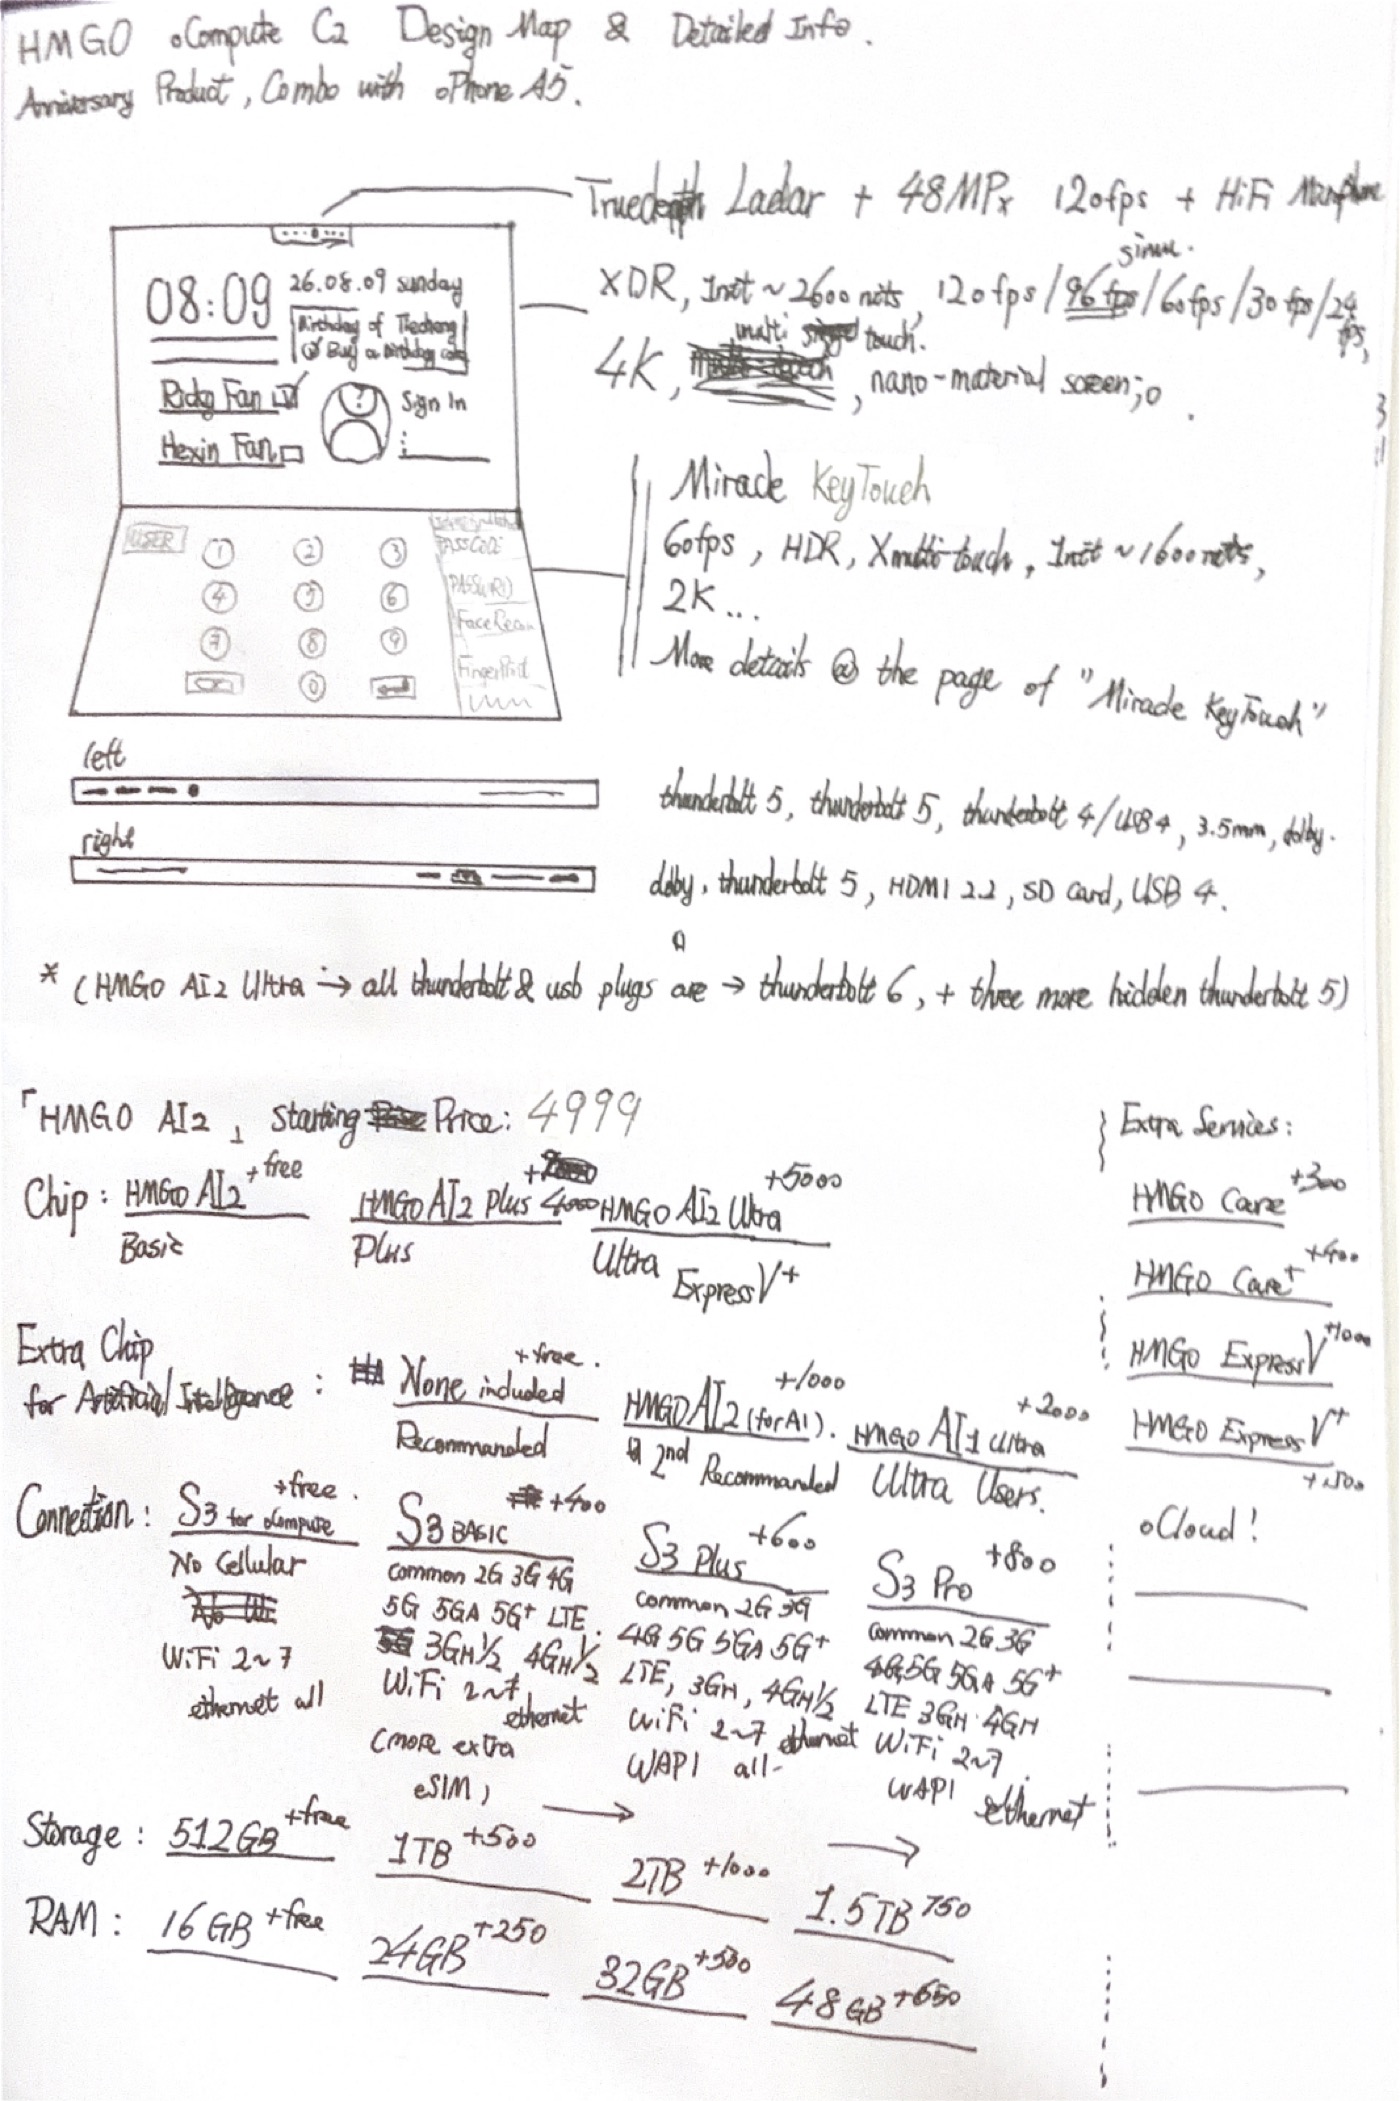 HMGO oCompute C2 Design Map & Detailed Info.
Anniversary Product, Combo with oPhone A5.
Truedepth Ladar + 48MPx 120fps + HiFi
08:09
26.08.09 sunday
Birthday of
Buy a birthday
Ricky Fan
Hexin Fan
?
Sign In
simu.
XDR, Init ~ 2600 nits, 120fps/96fps/60fps/30fps/24fps,
multi touch.
4K, , nano-material screen;o.
Miracle KeyTouch
60fps, HDR, Xmulti-touch, Init ~ 1600 nits,
2K...
More details @ the page of "Miracle KeyTouch"
USER
1 2 3
4 5 6
7 8 9
0
PASSCODE
PASSWORD
FaceRecon
FingerPrint
left
thunderbolt 5, thunderbolt 5, thunderbolt 4/USB4, 3.5mm, dolby.
right
dolby, thunderbolt 5, HDMI 2.2, SD card, USB 4.
* (HMGO AI2 Ultra → all thunderbolt & usb plugs are → thunderbolt 6, + three more hidden thunderbolt 5)
「HMGO AI2」 Starting Price: 4999
Chip: HMGO AI2 +free
Basic
HMGO AI2 Plus +4000
Plus
HMGO AI2 Ultra +5000
Ultra
ExpressV+
Extra Chip
for Artificial Intelligence:
None included +free.
Recommanded
HMGO AI2 (for AI). +1000
2nd Recommanded
HMGO AI1 Ultra +2000
Ultra Users.
Connection:
S3 for oCompute +free.
No Cellular
WiFi 2~7
ethernet all
S3 BASIC +400
common 2G 3G 4G
5G 5GA 5G+ LTE.
3GH1/2 4GH1/2
WiFi 2~7
ethernet
(more extra
eSIM)
S3 Plus +600
common 2G 3G
4G 5G 5GA 5G+
LTE, 3GH, 4GH1/2
WiFi 2~7 ethernet
WAPI all-
S3 Pro +800
common 2G 3G
4G, 5G 5GA 5G+
LTE 3GH 4GH
WiFi 2~7.
WAPI ethernet
Storage: 512GB +free 1TB +500 2TB +1000 1.5TB 750
RAM: 16GB +free 24GB +250 32GB +500 48GB +650
Extra Services:
HMGO Care +300
HMGO Care+ +400
HMGO ExpressV +1000
HMGO ExpressV+
oCloud!